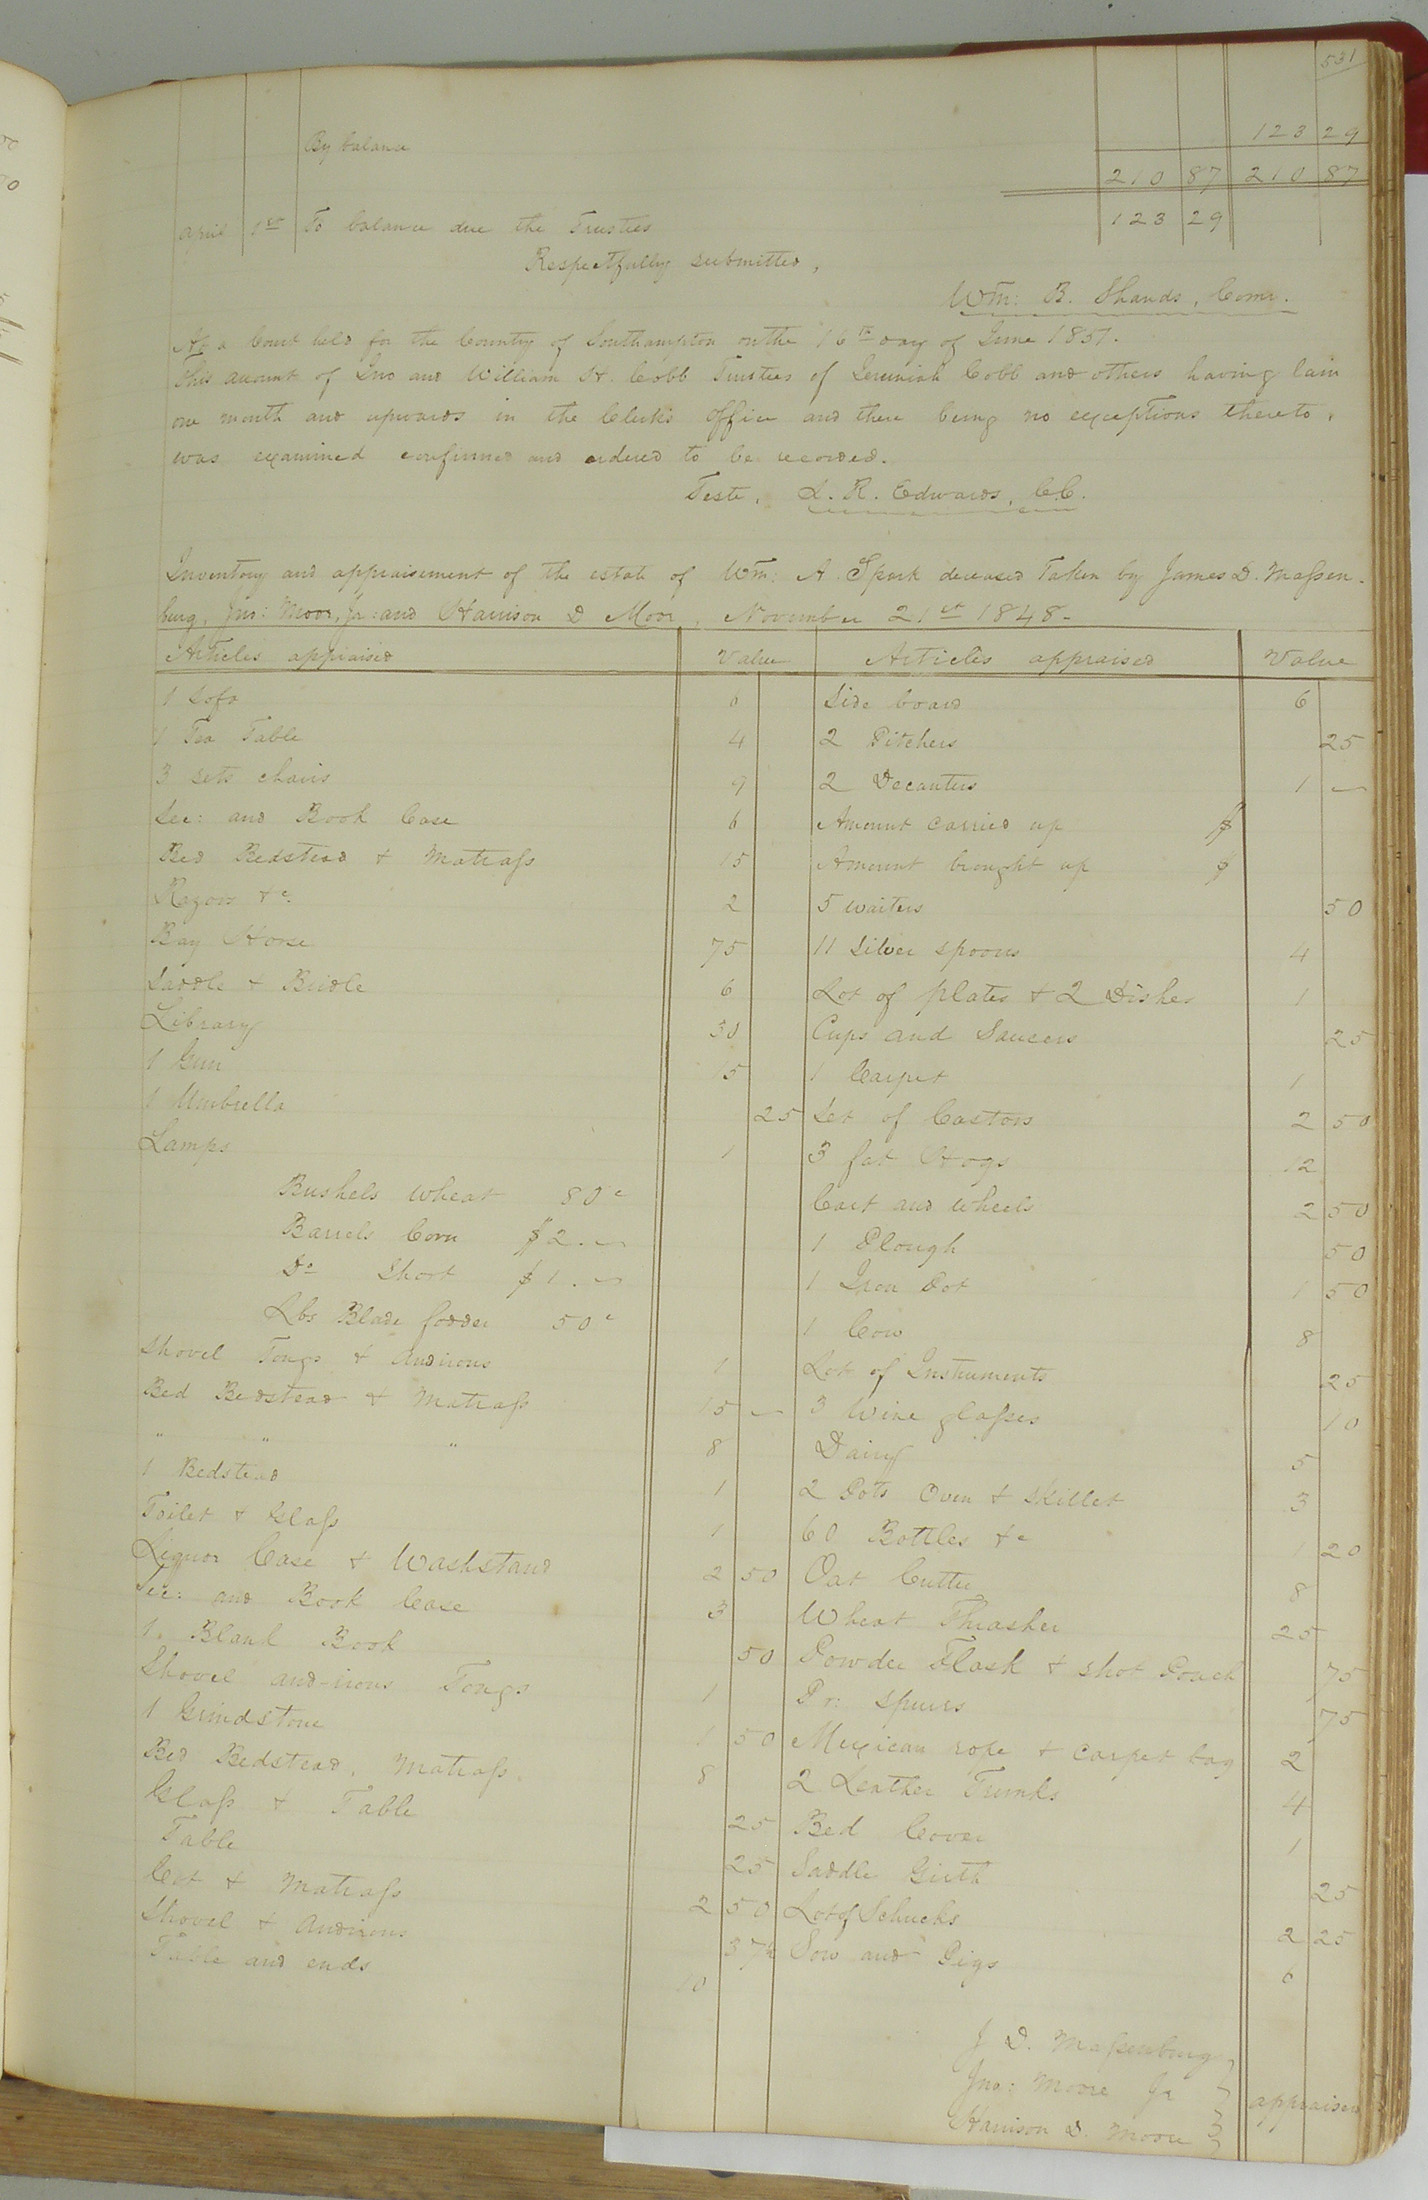 531
By balance 123 29
210 87 210 87
April 1st To balance due the Trustees 123 29
Respectfully submitted,
Wm: B. Shands, Comr.
At a Court held for the County of Southampton on the 16th day of June 1851.
This amount of Jno and William H. Cobb Trustees of Jeremiah Cobb and others having lain
one month and upwards in the Clerk's office and there being no exceptions thereto,
was examined confirmed and ordered to be recorded.
Teste, L. R. Edwards, C.C.
Inventory and appraisement of the estate of Wm: A. Spark deceased Taken by James D. Massen-
burg, Jno: Moor, Jr: and Harrison D Moor, November 21st 1848-
Articles appraised Value Articles appraised Value
1 Sofa 6 Side board 6
1 Tea Table 4 2 Pitchers 25
3 sets chairs 9 2 Decanters 1 —
Sec: and Book Case 6 Amount carried up $
Bed Bedstead & Matrass 15 Amount brought up $
Razors &c. 2 5 waiters 50
Bay Horse 75 11 Silver spoons 4
Saddle & Bridle 6 Lot of plates & 2 Dishes 1
Library 30 Cups and Saucers 25
1 Gun 15 1 Carpet 1
1 Umbrella 25 Set of Castors 2 50
Lamps 1 3 fat Hogs 12
Bushels wheat 80c Cart and wheels 2 50
Barrels Corn $2.— 1 Plough 50
Do Short $1.— 1 Iron Pot 1 50
Lbs Blade fodder 50c 1 Cow 8
Shovel Tongs & Andirons 1 Lot of Instruments 25
Bed Bedstead & Matrass 15 — 3 Wine glasses 10
" " " 8 Dairy 5
1 Bedstead 1 2 Pots Oven & Skillet 3
Toilet & Glass 1 60 Bottles &c 1 20
Liquor Case & Washstand 2 50 Oat Cutter 8
Sec: and Book Case 3 Wheat Thrasher 25
1. Blank Book 50 Powder Flask & shot Pouch 75
Shovel and-irons Tongs 1 Pr: Spurs 75
1 Grindstone 1 50 Mexican rope & carpet bag 2
Bed Bedstead, Matrass. 8 2 Leather Trunks 4
Glass & Table 25 Bed Cover 1
Table 25 Saddle Girth 25
Cot & Matrass 2 50 Lot of Schucks 2 25
Shovel & Andirons 37½ Sow and Pigs 6
Table and ends 10
J D. Massenburg
Jno: Moore Jr appraisers
Harrison D. Moore